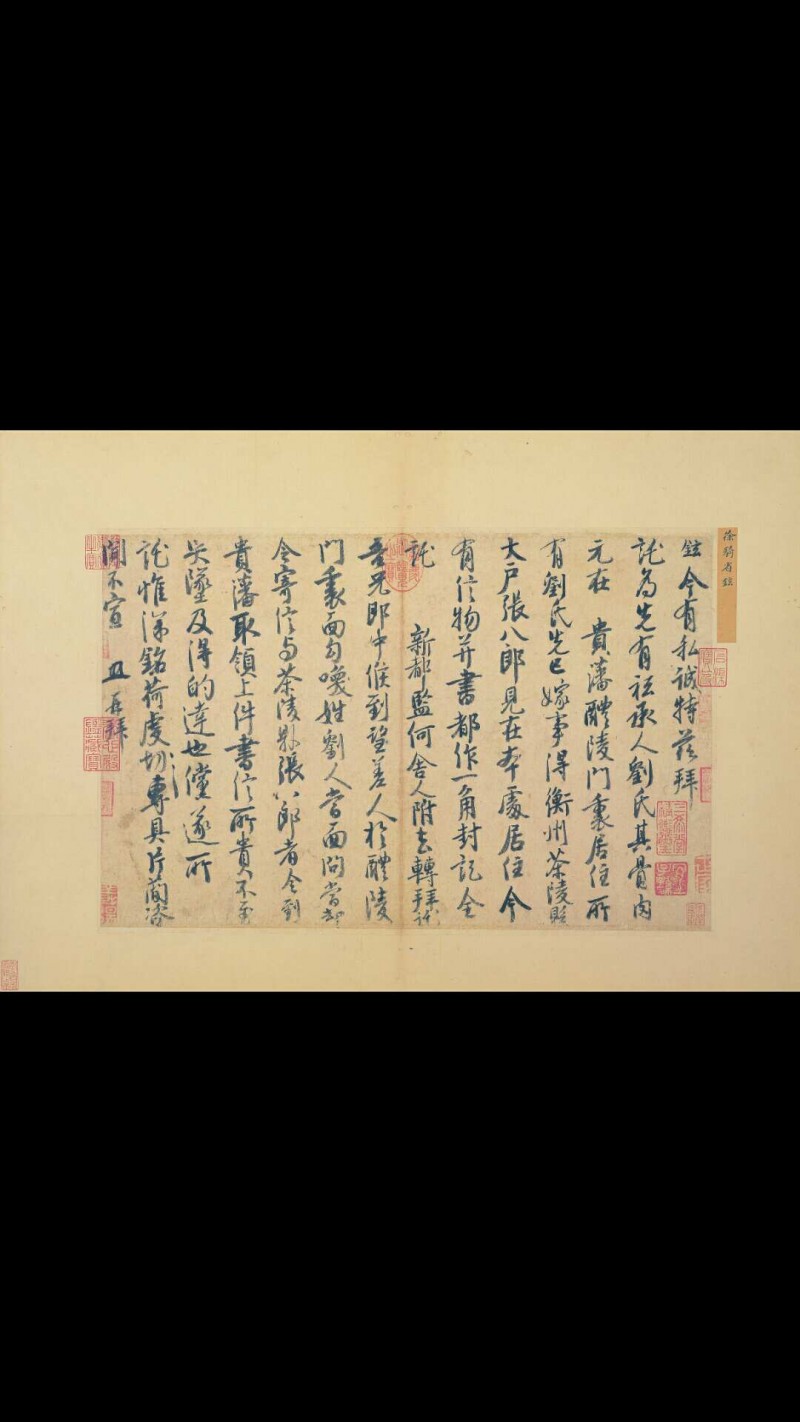 徐騎省鉉
鉉今有私誠特茲拜
託為先有祗承人劉氏其骨肉
元在 貴藩醴陵門裏居住所
有劉氏先已嫁事得衡州茶陵縣
大戶張八郎見在本處居住今
有信物并書都作一角封記全
託 新都監何舍人附去轉拜託
吾兄郎中候到望差人於醴陵
門裏面勾喚姓劉人當面問當却
令寄信与茶陵縣張八郎者令到
貴藩取領上件書信所貴不至
失墜及得的達也儻遂所
託惟深銘荷虔切虔切專具片簡咨
聞不宣 再拜